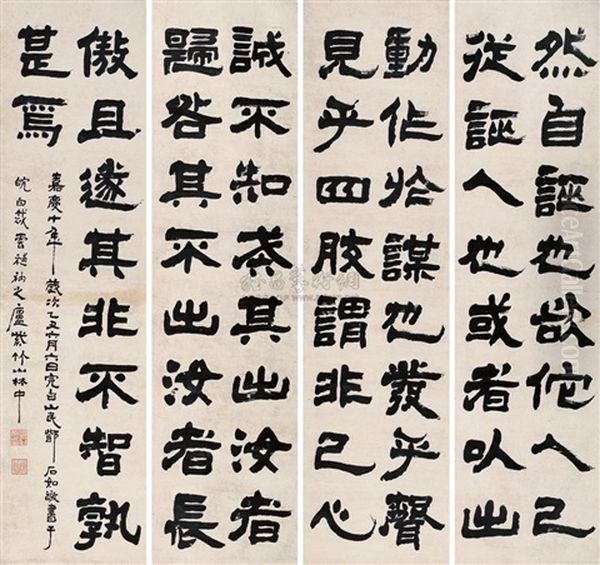 然自誣也欲佗人己
從誣人也或者以出
動作於謀也發乎聲
見乎四肢謂非己心
誠不知戒其出汝者
歸咎其不出汝者長
傲且遂其非不智孰
甚焉
嘉慶十年歲次乙丑六月六日完白山民鄧石如敬書于
皖白雲之廬紫竹山林中